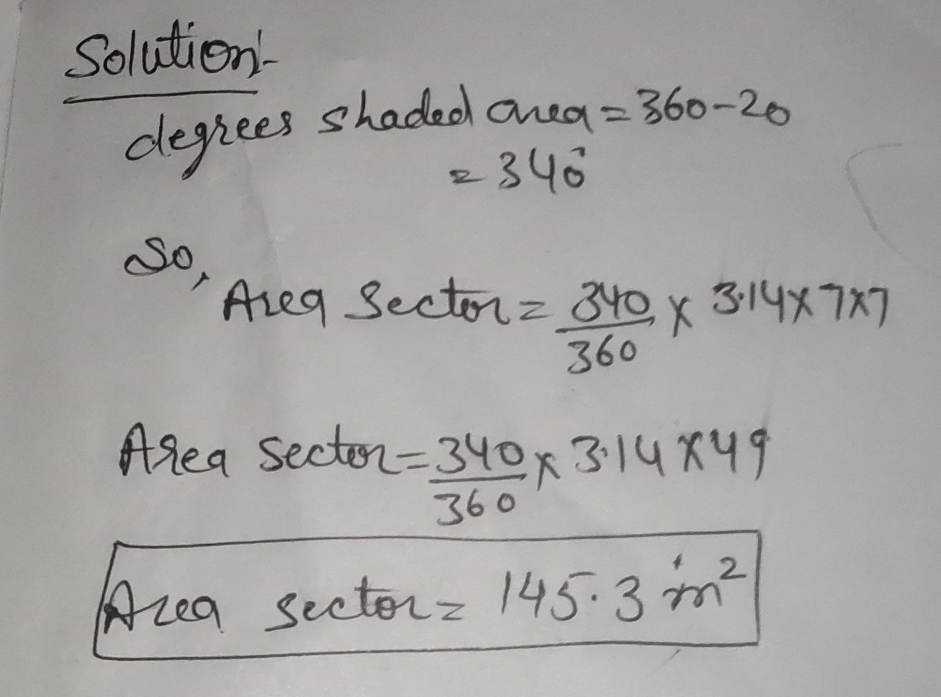 Solution-
degrees shaded area = 360-20
= 340°
So,
Area Sector = 340/360 x 3.14x7x7
Area Sector = 340/360 x 3.14 x 49
Area sector = 145.3 in²